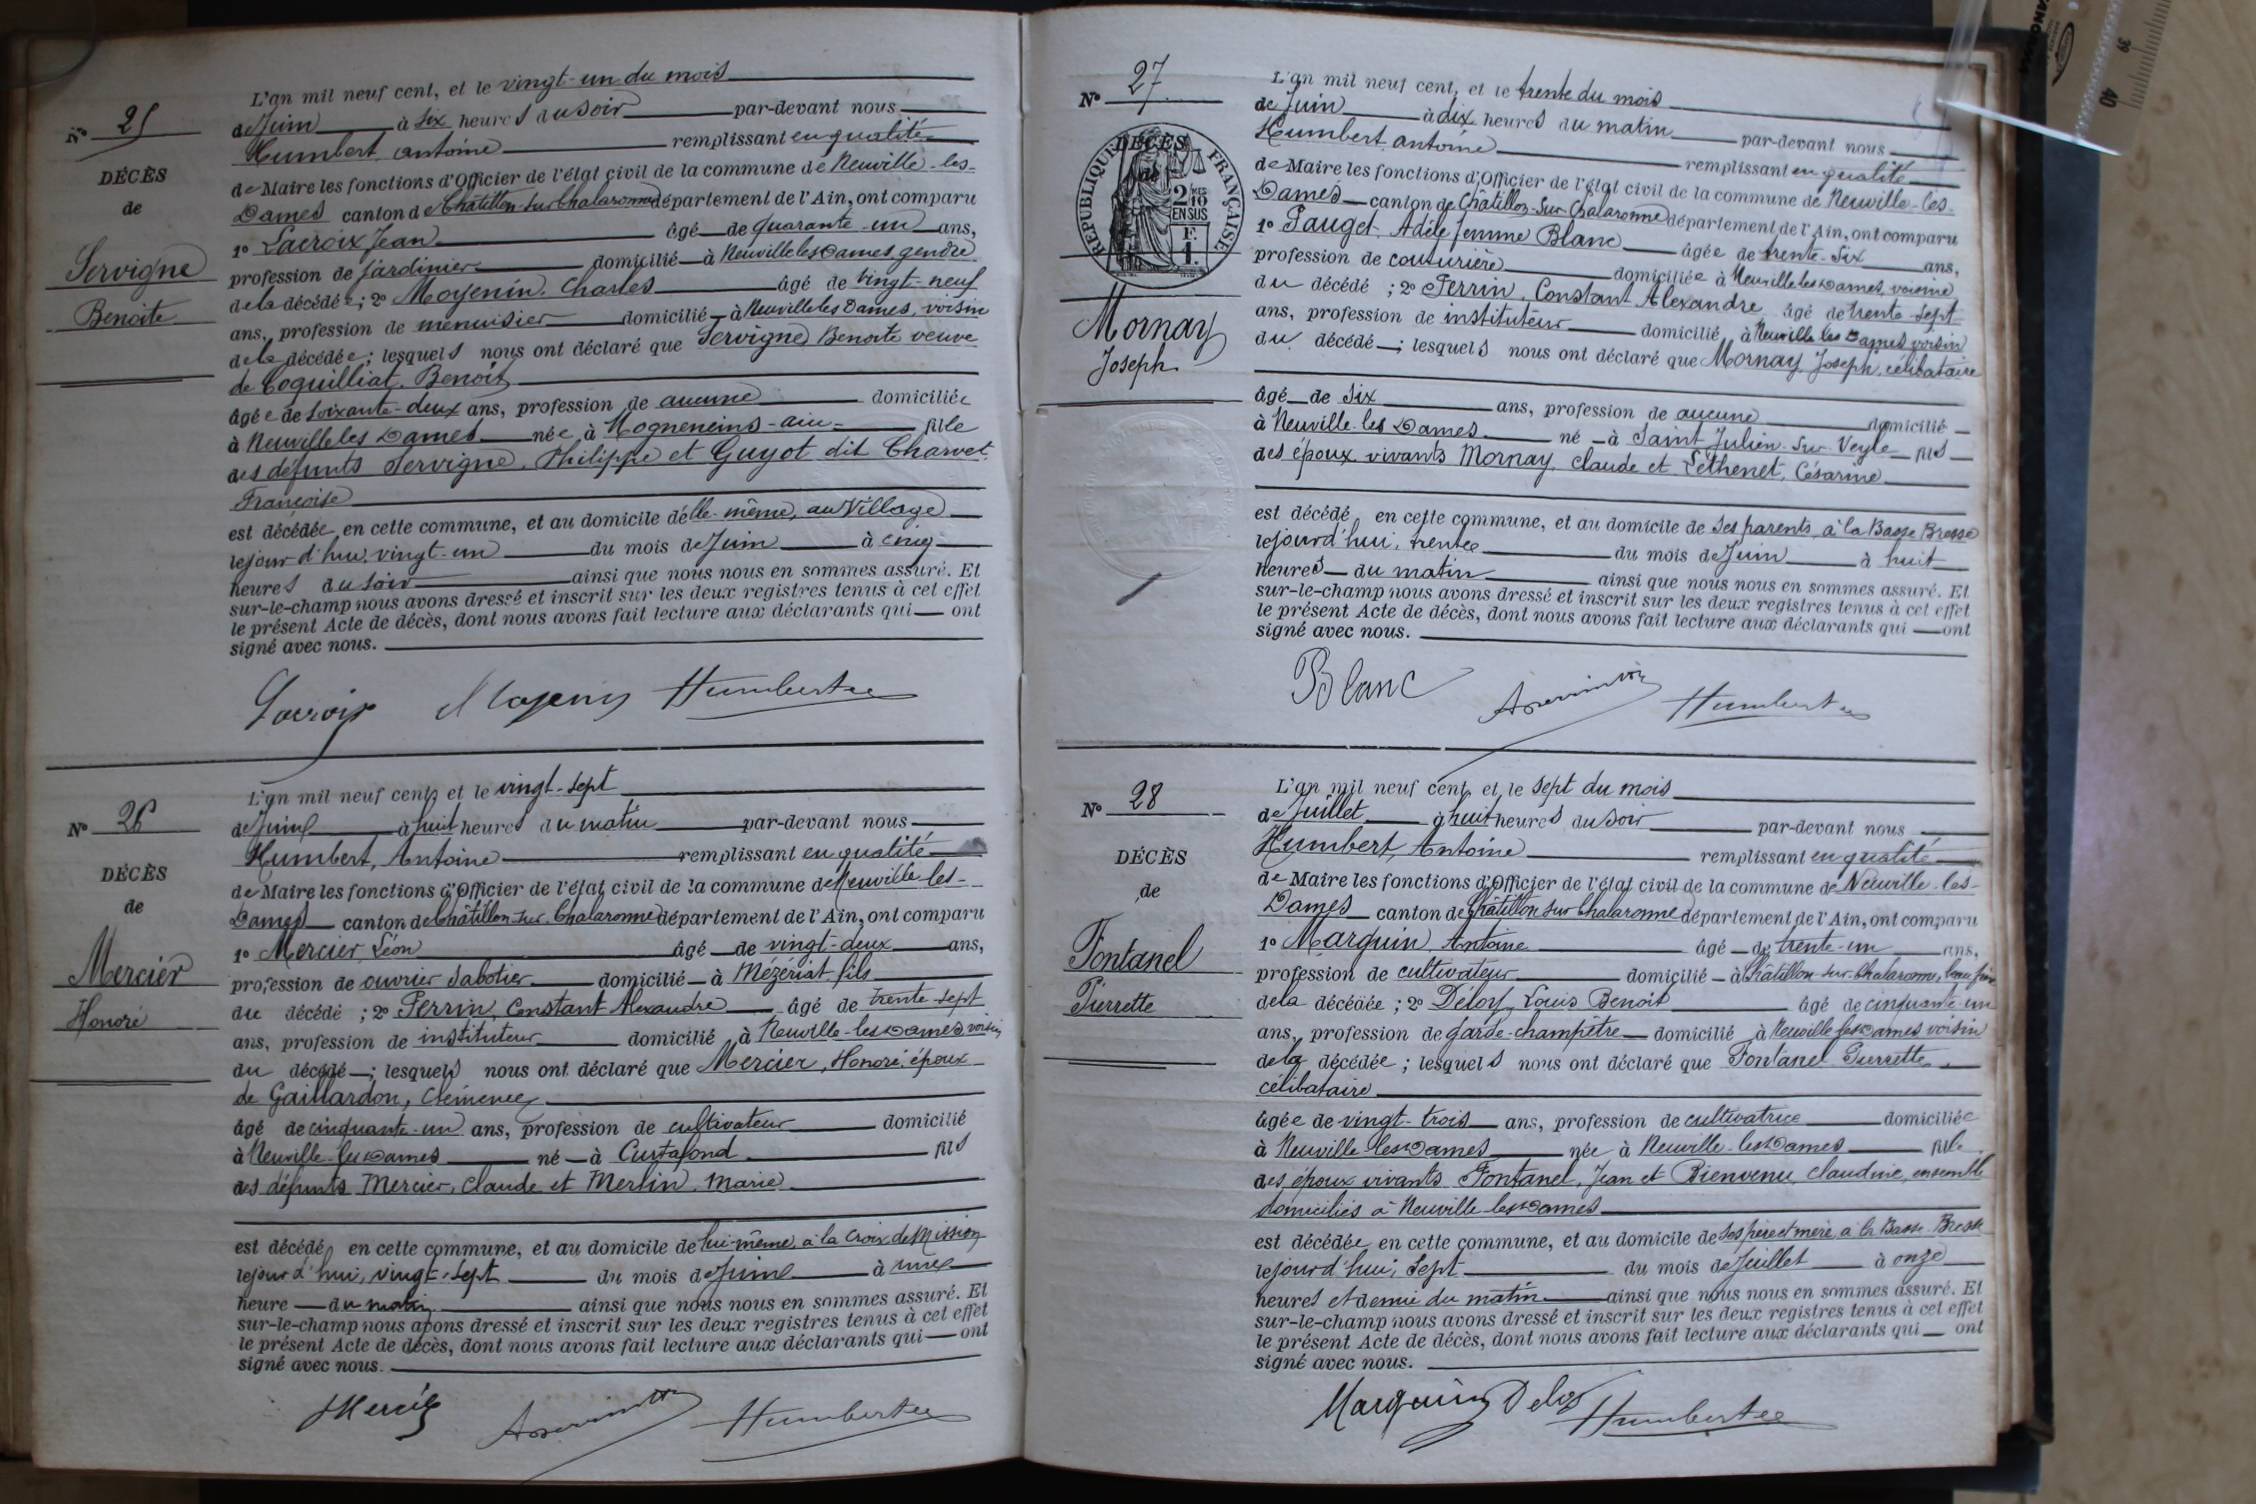 N° 25
DÉCÈS
de
Servigne
Benoite
L'an mil neuf cent, et le vingt-un du mois
de Juin à six heures du soir par-devant nous
Humbert, antoine remplissant en qualité
de Maire les fonctions d'Officier de l'état civil de la commune de Neuville-les-
Dames canton de Châtillon-sur-Chalaronne département de l'Ain, ont comparu
1° Lacroix Jean âgé de quarante-un ans,
profession de jardinier domicilié à Neuville les Dames gendre
de la décédée; 2° Moyenin, Charles âgé de vingt-neuf
ans, profession de menuisier domicilié à Neuville les Dames, voisin
de la décédée; lesquels nous ont déclaré que Servigne Benoite veuve
de Coquilliat, Benoit
âgée de soixante-deux ans, profession de aucune domiciliée
à Neuville les Dames née à Mogneneins-ain- fille
des défunts Servigne, Philippe et Guyot dit Charvet
Françoise
est décédée en cette commune, et au domicile d'elle-même, au Village
le jour d'hui vingt-un du mois de Juin à cinq
heures du soir ainsi que nous nous en sommes assuré. Et
sur-le-champ nous avons dressé et inscrit sur les deux registres tenus à cet effet
le présent Acte de décès, dont nous avons fait lecture aux déclarants qui ont
signé avec nous.
Lacroix Moyenin Humbert
N° 26
DÉCÈS
de
Mercier
Honoré
L'an mil neuf cent, et le vingt-sept
de Juin à huit heures du matin par-devant nous
Humbert, Antoine remplissant en qualité
de Maire les fonctions d'Officier de l'état civil de la commune de Neuville les-
Dames canton de Châtillon-sur-Chalaronne département de l'Ain, ont comparu
1° Mercier, Léon âgé de vingt-deux ans,
profession de ouvrier sabotier domicilié à Mézériat fils
du décédé; 2° Perrin, Constant Alexandre âgé de trente-sept
ans, profession de instituteur domicilié à Neuville-les-Dames voisin
du décédé; lesquels nous ont déclaré que Mercier, Honoré, époux
de Gaillardon, Clémence
âgé de cinquante-un ans, profession de cultivateur domicilié
à Neuville-les-Dames né à Curtafond fils
des défunts Mercier, Claude et Merlin, Marie
est décédé en cette commune, et au domicile de lui-même, à la Croix de Mission
le jour d'hui, vingt-sept du mois de Juin à une
heure du matin ainsi que nous nous en sommes assuré. Et
sur-le-champ nous avons dressé et inscrit sur les deux registres tenus à cet effet
le présent Acte de décès, dont nous avons fait lecture aux déclarants qui ont
signé avec nous.
Mercier Humbert
N° 27
DÉCÈS
de
RÉPUBLIQUE FRANÇAISE
2/10 EN SUS
F. 1.
Mornay
Joseph
L'an mil neuf cent, et le trente du mois
de Juin à dix heures du matin par-devant nous
Humbert, antoine remplissant en qualité
de Maire les fonctions d'Officier de l'état civil de la commune de Neuville-les-
Dames canton de Châtillon-sur-Chalaronne département de l'Ain, ont comparu
1° Pauget, Adèle femme Blanc âgée de trente-six ans,
profession de couturière domiciliée à Neuville les Dames, voisine
du décédé; 2° Perrin, Constant Alexandre âgé de trente-sept
ans, profession de instituteur domicilié à Neuville les Dames voisin
du décédé; lesquels nous ont déclaré que Mornay, Joseph, célibataire
âgé de six ans, profession de aucune domicilié
à Neuville-les Dames né à Saint Julien-sur-Veyle fils
des époux vivants Mornay, Claude et Léthenet, Césarine
est décédé en cette commune, et au domicile de ses parents, à la Basse Bresse
le jour d'hui, trente du mois de Juin à huit
heures du matin ainsi que nous nous en sommes assuré. Et
sur-le-champ nous avons dressé et inscrit sur les deux registres tenus à cet effet
le présent Acte de décès, dont nous avons fait lecture aux déclarants qui ont
signé avec nous.
Blanc Humbert
N° 28
DÉCÈS
de
Fontanel
Pierrette
L'an mil neuf cent, et le sept du mois
de Juillet à huit heures du soir par-devant nous
Humbert, Antoine remplissant en qualité
de Maire les fonctions d'Officier de l'état civil de la commune de Neuville-les-
Dames canton de Châtillon sur Chalaronne département de l'Ain, ont comparu
1° Marguin, Antoine âgé de trente-un ans,
profession de cultivateur domicilié à Châtillon-sur-Chalaronne, beau-frère
de la décédée; 2° Deloy, Louis Benoit âgé de cinquante-un
ans, profession de garde-champêtre domicilié à Neuville les Dames voisin
de la décédée; lesquels nous ont déclaré que Fontanel Pierrette
célibataire
âgée de vingt-trois ans, profession de cultivatrice domiciliée
à Neuville les Dames née à Neuville-les-Dames fille
des époux vivants Fontanel, Jean et Bienvenu, Claudine, ensemble
domiciliés à Neuville les Dames
est décédée en cette commune, et au domicile de ses père et mère, à la Basse-Bresse
le jour d'hui, sept du mois de Juillet à onze
heures et demie du matin ainsi que nous nous en sommes assuré. Et
sur-le-champ nous avons dressé et inscrit sur les deux registres tenus à cet effet
le présent Acte de décès, dont nous avons fait lecture aux déclarants qui ont
signé avec nous.
Marguin Deloy Humbert
39
40